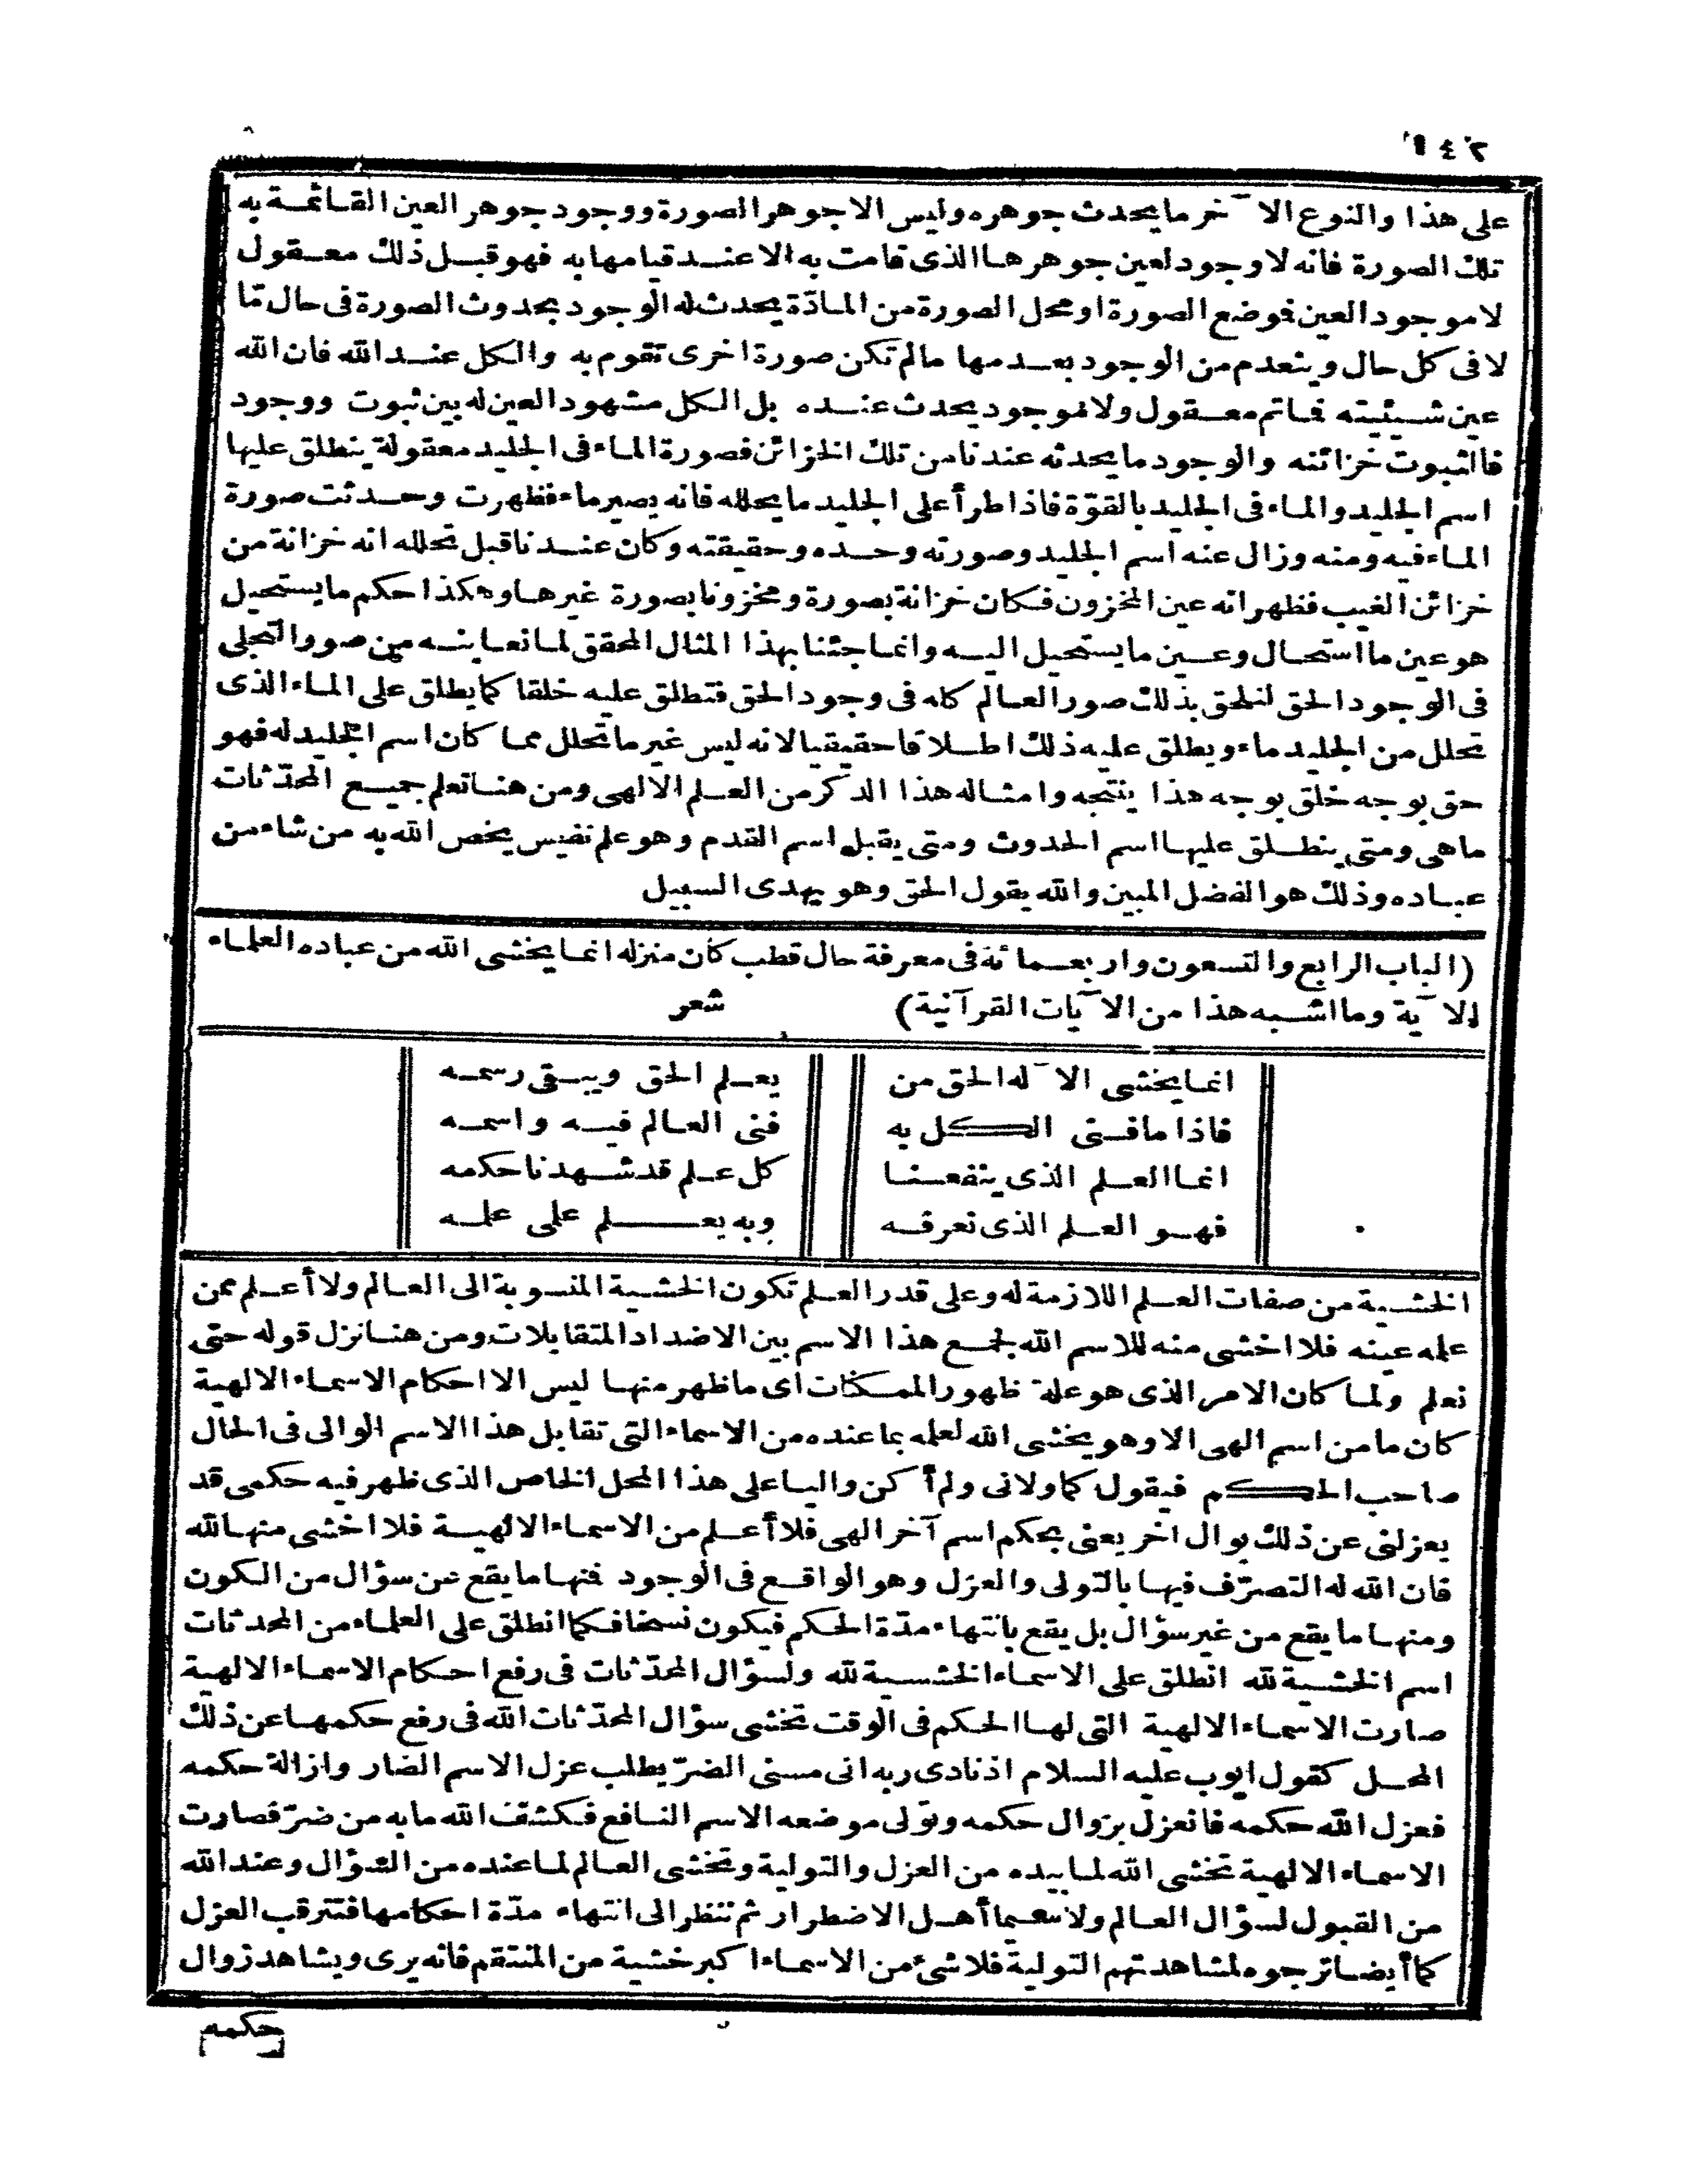 ١٤٢
على هذا والنوع الآخر ما يحدث جوهره وليس الا جوهر الصورة ووجود جوهر العين القائمة به
تلك الصورة فانه لا وجود لعين جوهرها الذى قامت به الا عند قيامها به فهو قبل ذلك معقول
لا موجود العين فوضع الصورة او محل الصورة من المادّة يحدث له الوجود بحدوث الصورة فى حال مّا
لا فى كل حال وينعدم من الوجود بعدمها مالم تكن صورة اخرى تقوم به والكل عند الله فان الله
عين شيئيته فما ثم معقول ولا موجود يحدث عنده بل الكل مشهود العين له بين ثبوت ووجود
فالثبوت خزائنه والوجود ما يحدثه عندنا من تلك الخزائن فصورة الماء فى الجليد معقولة ينطلق عليها
اسم الجليد والماء فى الجليد بالقوّة فاذا طرأ على الجليد ما يحلله فانه يصير ماء فظهرت وحدثت صورة
الماء فيه ومنه وزال عنه اسم الجليد وصورته وحده وحقيقته وكان عندنا قبل تحلله انه خزانة من
خزائن الغيب فظهر انه عين المخزون فكان خزانة بصورة ومخزونا بصورة غيرها وهكذا حكم ما يستحيل
هو عين ما استحال وعين ما يستحيل اليه وانما جئنا بهذا المثال المحقق لما نعاينه من صور التجلى
فى الوجود الحق لنلحق بذلك صور العالم كله فى وجود الحق فنطلق عليه خلقا كما يطلق على الماء الذى
تحلل من الجليد ماء ويطلق عليه ذلك اطلاقا حقيقيا لانه ليس غير ما تحلل مما كان اسم الجليد له فهو
حق بوجه خلق بوجه هذا ينتجه وامثاله هذا الذكر من العلم الالهى ومن هنا تعلم جميع المحدّثات
ماهى ومتى ينطلق عليها اسم الحدوث ومتى يقبل اسم القدم وهو علم نفيس يخص الله به من شاء من
عباده وذلك هو الفضل المبين والله يقول الحق وهو يهدى السبيل
(الباب الرابع والتسعون واربعمائة فى معرفة حال قطب كان منزله انما يخشى الله من عباده العلماء
الآية وما اشبه هذا من الآيات القرآنية) شعر
انما يخشى الاله الحق من يعلم الحق ويبقى رسمه
فاذا ما فنى الكل به فنى العالم فيه واسمه
انما العلم الذى ينفعنا كل علم قد شهدنا حكمه
فهو العلم الذى نعرفه وبه يعلم على علمه
الخشية من صفات العلم اللازمة له وعلى قدر العلم تكون الخشية المنسوبة الى العالم ولا أعلم ممن
علمه عينه فلا اخشى منه للاسم الله لجمع هذا الاسم بين الاضداد المتقابلات ومن هنا نزل قوله حتى
نعلم ولما كان الامر الذى هو علة ظهور الممكنات اى ما ظهر منها ليس الا احكام الاسماء الالهية
كان ما من اسم الهى الا وهو يخشى الله لعلمه بما عنده من الاسماء التى تقابل هذا الاسم الوالى فى الحال
صاحب الحكم فيقول كما ولانى ولم أكن واليا على هذا المحل الخاص الذى ظهر فيه حكمى قد
يعزلنى عن ذلك بوال اخر يعنى بحكم اسم آخر الهى فلا أعلم من الاسماء الالهية فلا اخشى منها لله
فان الله له التصرّف فيها بالتولى والعزل وهو الواقع فى الوجود فمنها ما يقع عن سؤال من الكون
ومنها ما يقع من غير سؤال بل يقع بانتهاء مدّة الحكم فيكون نسخا فكما انطلق على العلماء من المحدثات
اسم الخشية لله انطلق على الاسماء الخشسية لله ولسؤال المحدّثات فى رفع احكام الاسماء الالهية
صارت الاسماء الالهية التى لها الحكم فى الوقت تخشى سؤال المحدّثات الله فى رفع حكمها عن ذلك
المحل كقول ايوب عليه السلام اذ نادى ربه انى مسنى الضرّ يطلب عزل الاسم الضار وازالة حكمه
فعزل الله حكمه فانعزل بزوال حكمه وتولى موضعه الاسم النافع فكشف الله ما به من ضرّ فصارت
الاسماء الالهية تخشى الله لما بيده من العزل والتولية وتخشى العالم لما عنده من السؤال وعند الله
من القبول لسؤال العالم ولا سيما أهل الاضطرار ثم تنظر الى انتهاء مدّة احكامها فتترقب العزل
كما أيضا ترجوه لمشاهدتهم التولية فلا شئ من الاسماء اكبر خشية من المنتقم فانه يرى ويشاهد زوال
حكمه